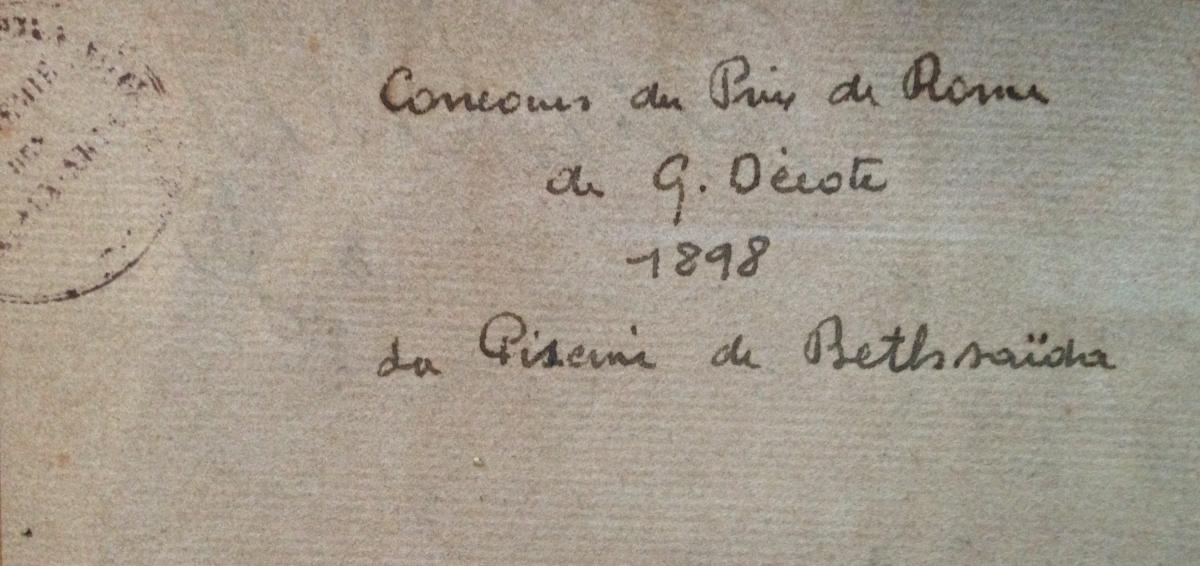 DES
Concours du Prix de Rome
de G. Décote
1898
La Piscine de Bethssaïda